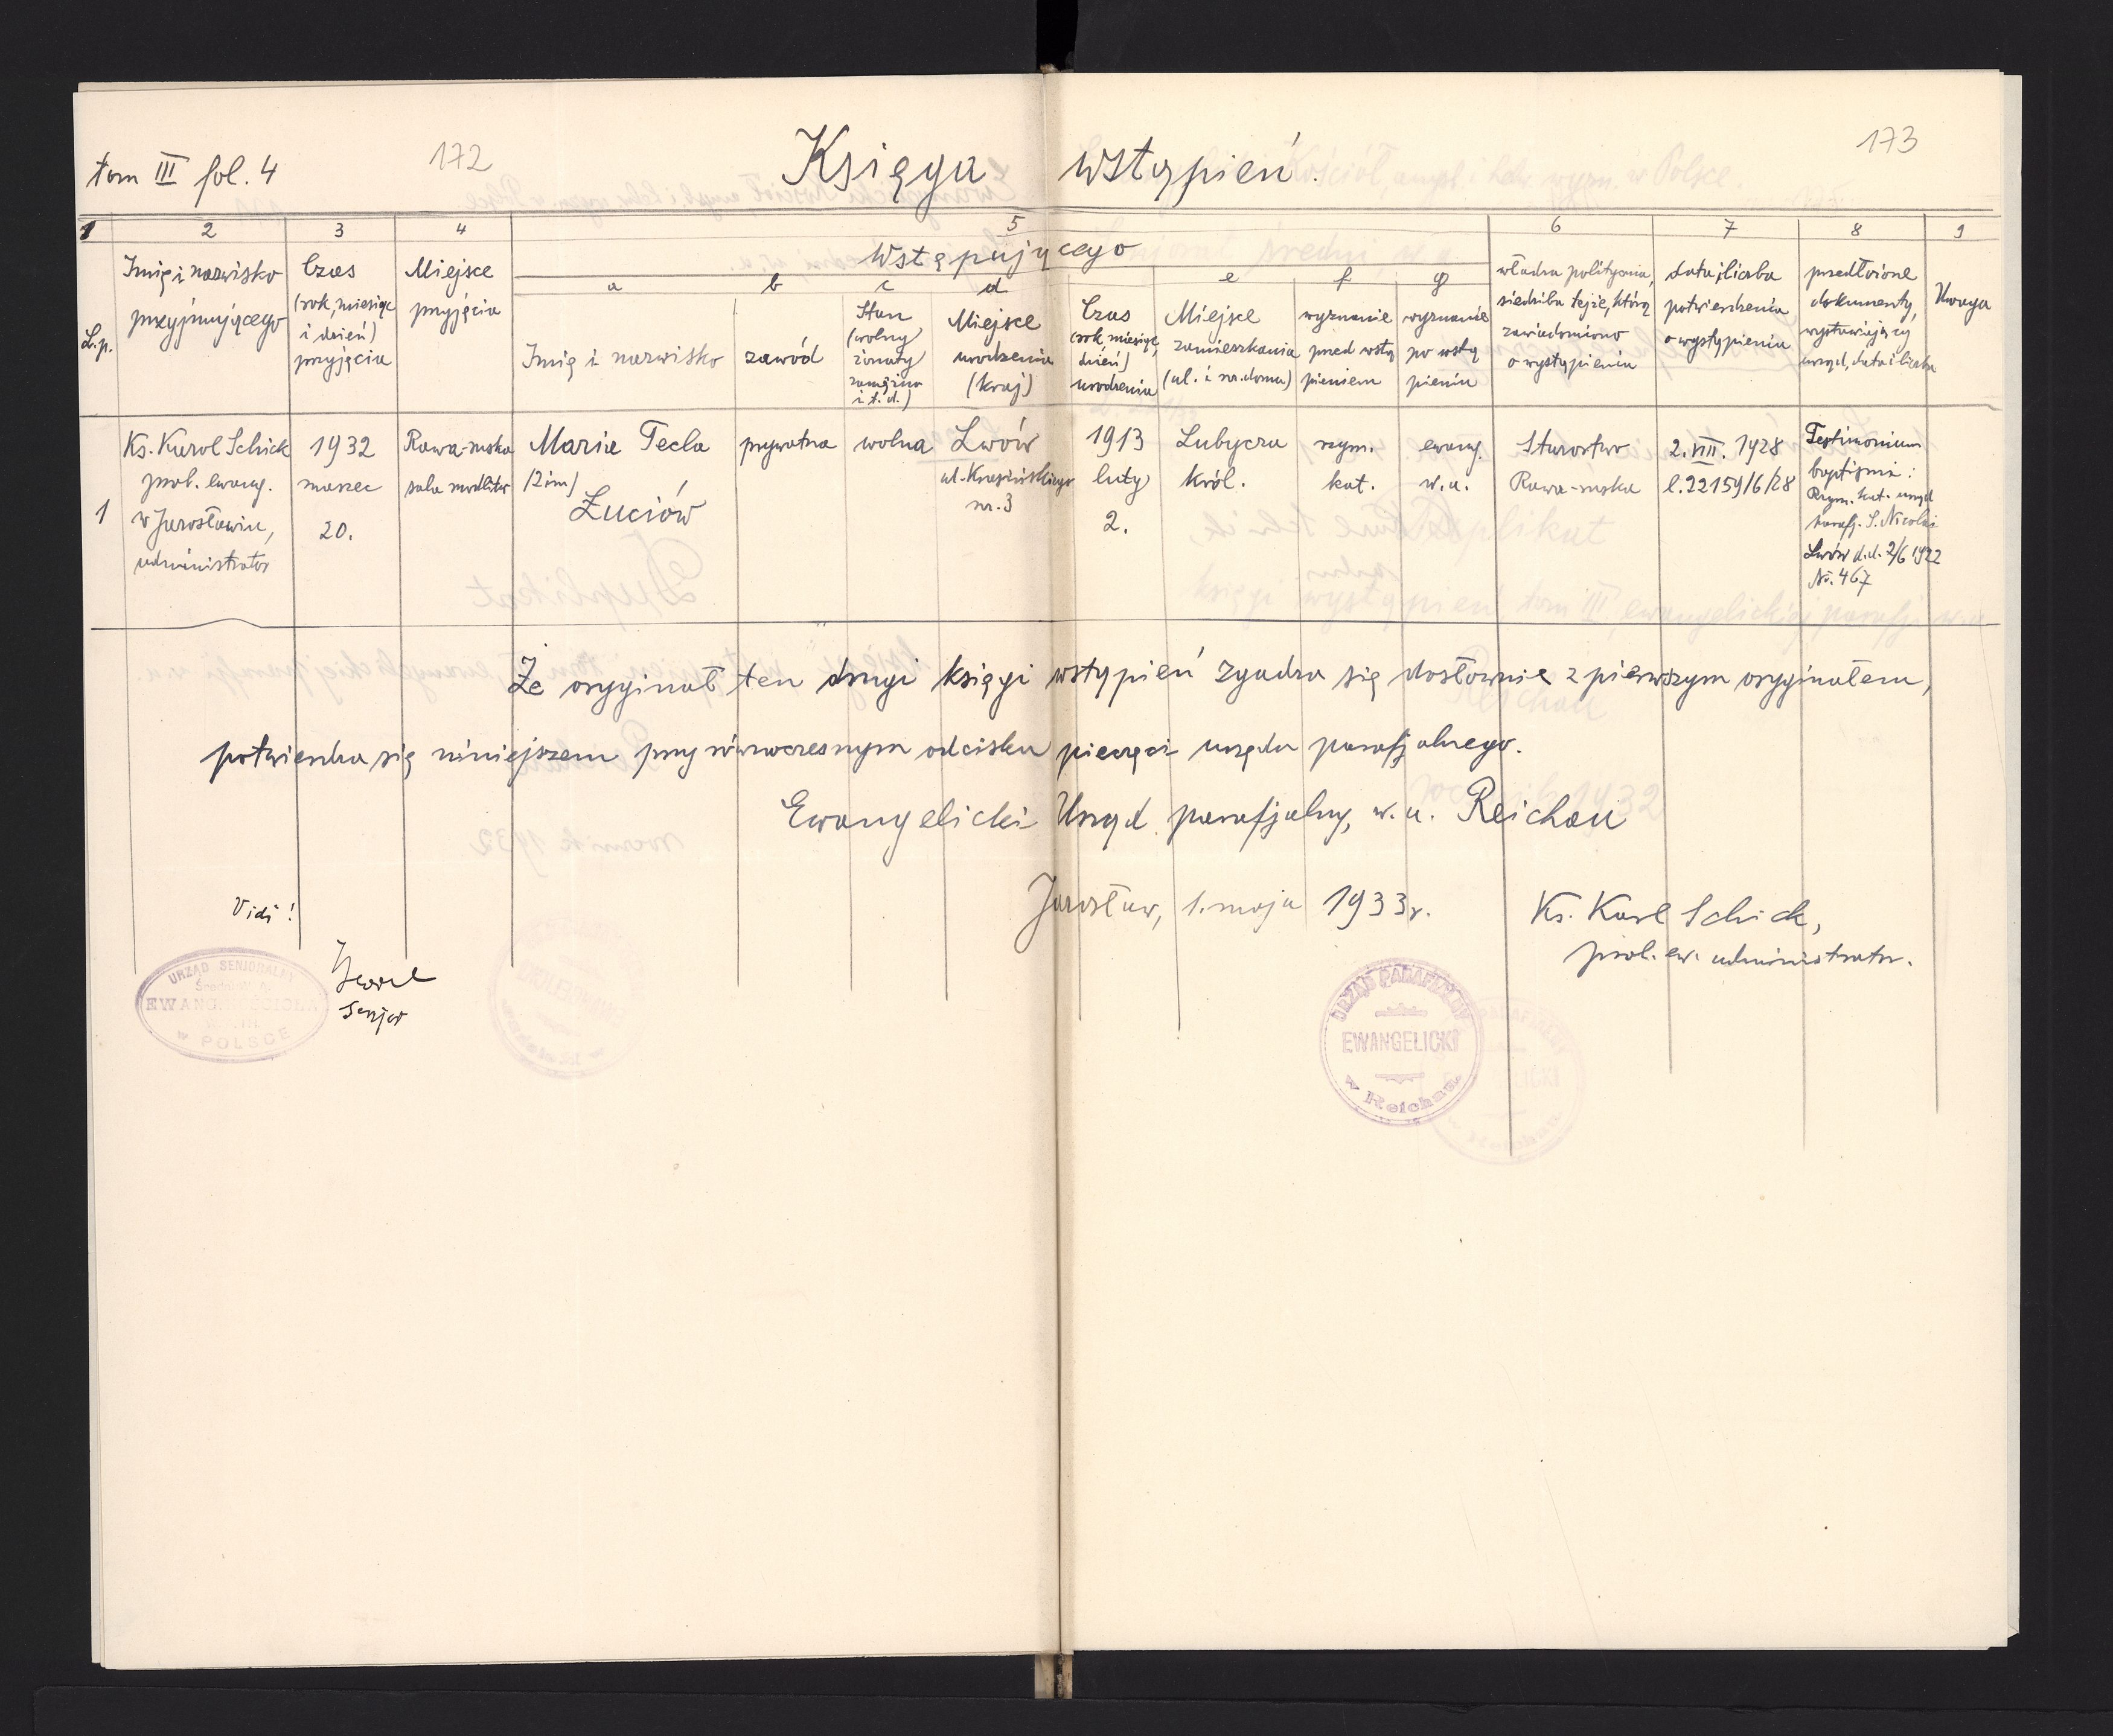 tom III fol. 4
172
Księga wstąpień.
173
1 2 3 4 5 6 7 8 9
Wstępującego
a b c d e f g
L.p.
Imię i nazwisko
przyjmującego
Czas
(rok, miesiąc
i dzień)
przyjęcia
Miejsce
przyjęcia
Imię i nazwisko
zawód
Stan
(wolny
żonaty
zamężna
i t. d.)
Miejsce
urodzenia
(kraj)
Czas
(rok, miesiąc,
dzień)
urodzenia
Miejsce
zamieszkania
(ul. i nr. domu)
wyznanie
przed wstą
pieniem
wyznanie
po wstą
pieniu
władza polityczna,
siedziba tejże, którą
zawiadomiono
o wystąpieniu
data i liczba
potwierdzenia
o wystąpieniu
przedłożone
dokumenty,
wystawiający
urząd, data i liczba
Uwaga
1
Ks. Karol Schick
prob. ewang.
w Jarosławiu,
administrator
1932
marzec
20.
Rawa-ruska
sala modlitw
Maria Tecla
(2 im)
Łuciów
prywatna
wolna
Lwów
ul. Krasińskiego
nr. 3
1913
luty
2.
Lubycza
król.
rzym.
kat.
ewang.
w. a.
Starostwo
Rawa-ruska
2. VIII. 1928
l. 22159/6/28
Testimonium
baptismi:
Rzym. kat. urząd
parafj. S. Nicolai
Lwów d.d. 2/6 1922
No. 467
Że oryginał ten drugi księgi wstąpień zgadza się dosłownie z pierwszym oryginałem,
potwierdza się niniejszem przy równoczesnym odcisku pieczęci urzędu parafjalnego.
Ewangelicki Urząd parafjalny, w. a. Reichau
Jarosław, 1. maja 1933 r.
Ks. Karl Schick,
prob. ew. administrator.
Vidi!
Senjor
URZĄD SENJORALNY
EWANG. KOŚCIOŁA
w POLSCE
URZĄD PARAFJALNY
EWANGELICKI
w Reichau